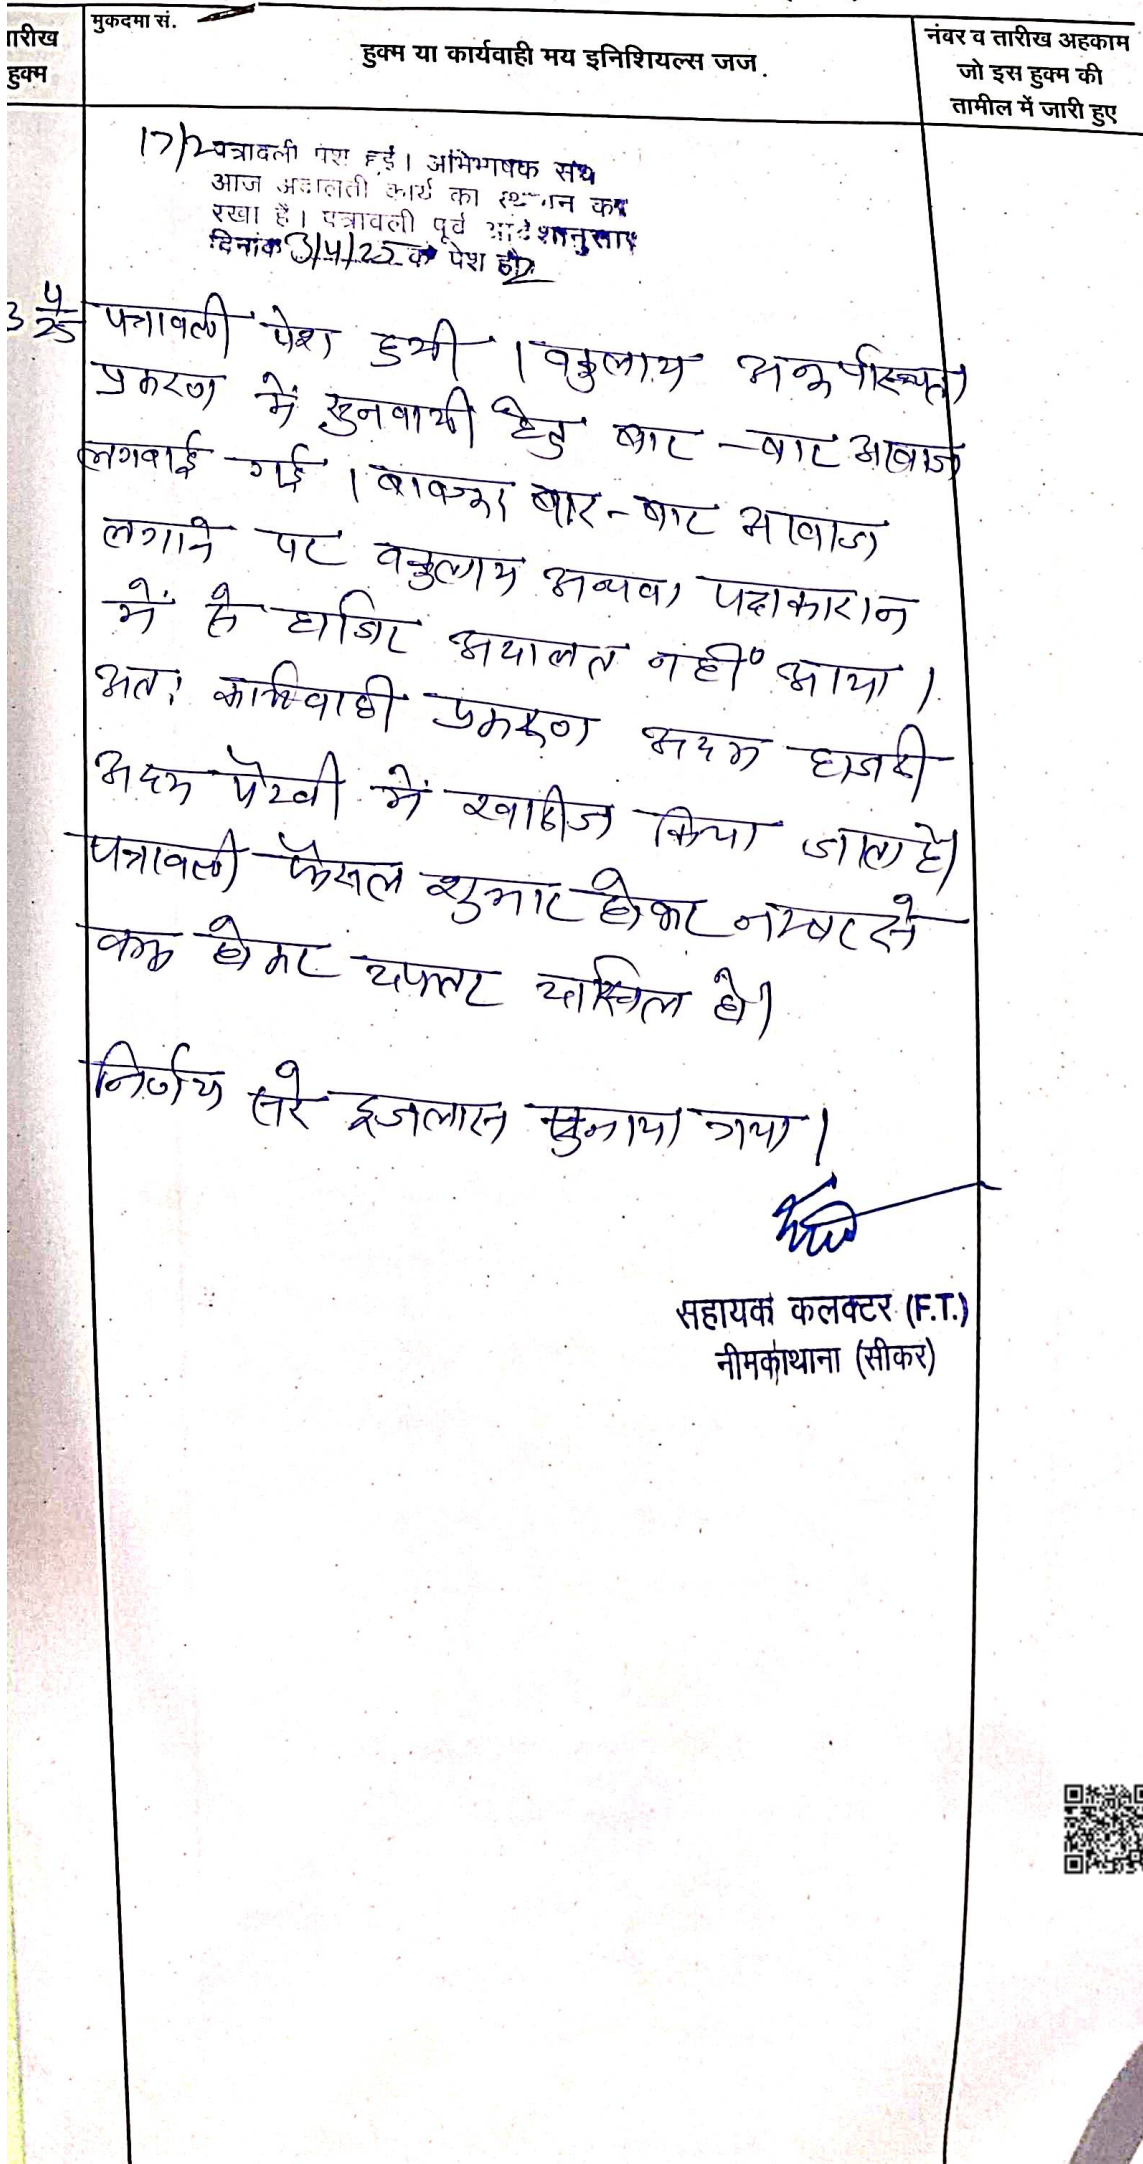 मुकदमा सं.
तारीख
हुक्म
हुक्म या कार्यवाही मय इनिशियल्स जज.
नंबर व तारीख अहकाम
जो इस हुक्म की
तामील में जारी हुए
17/2 पत्रावली पेश हुई। अभिभाषक संघ
आज अदालती कार्य का स्थगन कर
रखा है। पत्रावली पूर्व आदेशानुसार
दिनांक 3/4/25 को पेश हो
3 4/25 पत्रावली पेश हुयी । वकुलाय अनुपस्थित
प्रकरण में सुनवायी हेतु बार-बार आवाज
लगवाई गई । बावजूद बार-बार आवाज
लगाने पर वकुलाय अथवा पक्षकारान
में से हाजिर अदालत नहीं आया ।
अतः कार्यवाही प्रकरण अदम हाजरी
अदम पैरवी में खारीज किया जाता है।
पत्रावली फैसल शुमार होकर नम्बर से
कम होकर दफ्तर दाखिल हो।
निर्णय सरे इजलास सुनाया गया ।
सहायक कलक्टर (F.T.)
नीमकाथाना (सीकर)